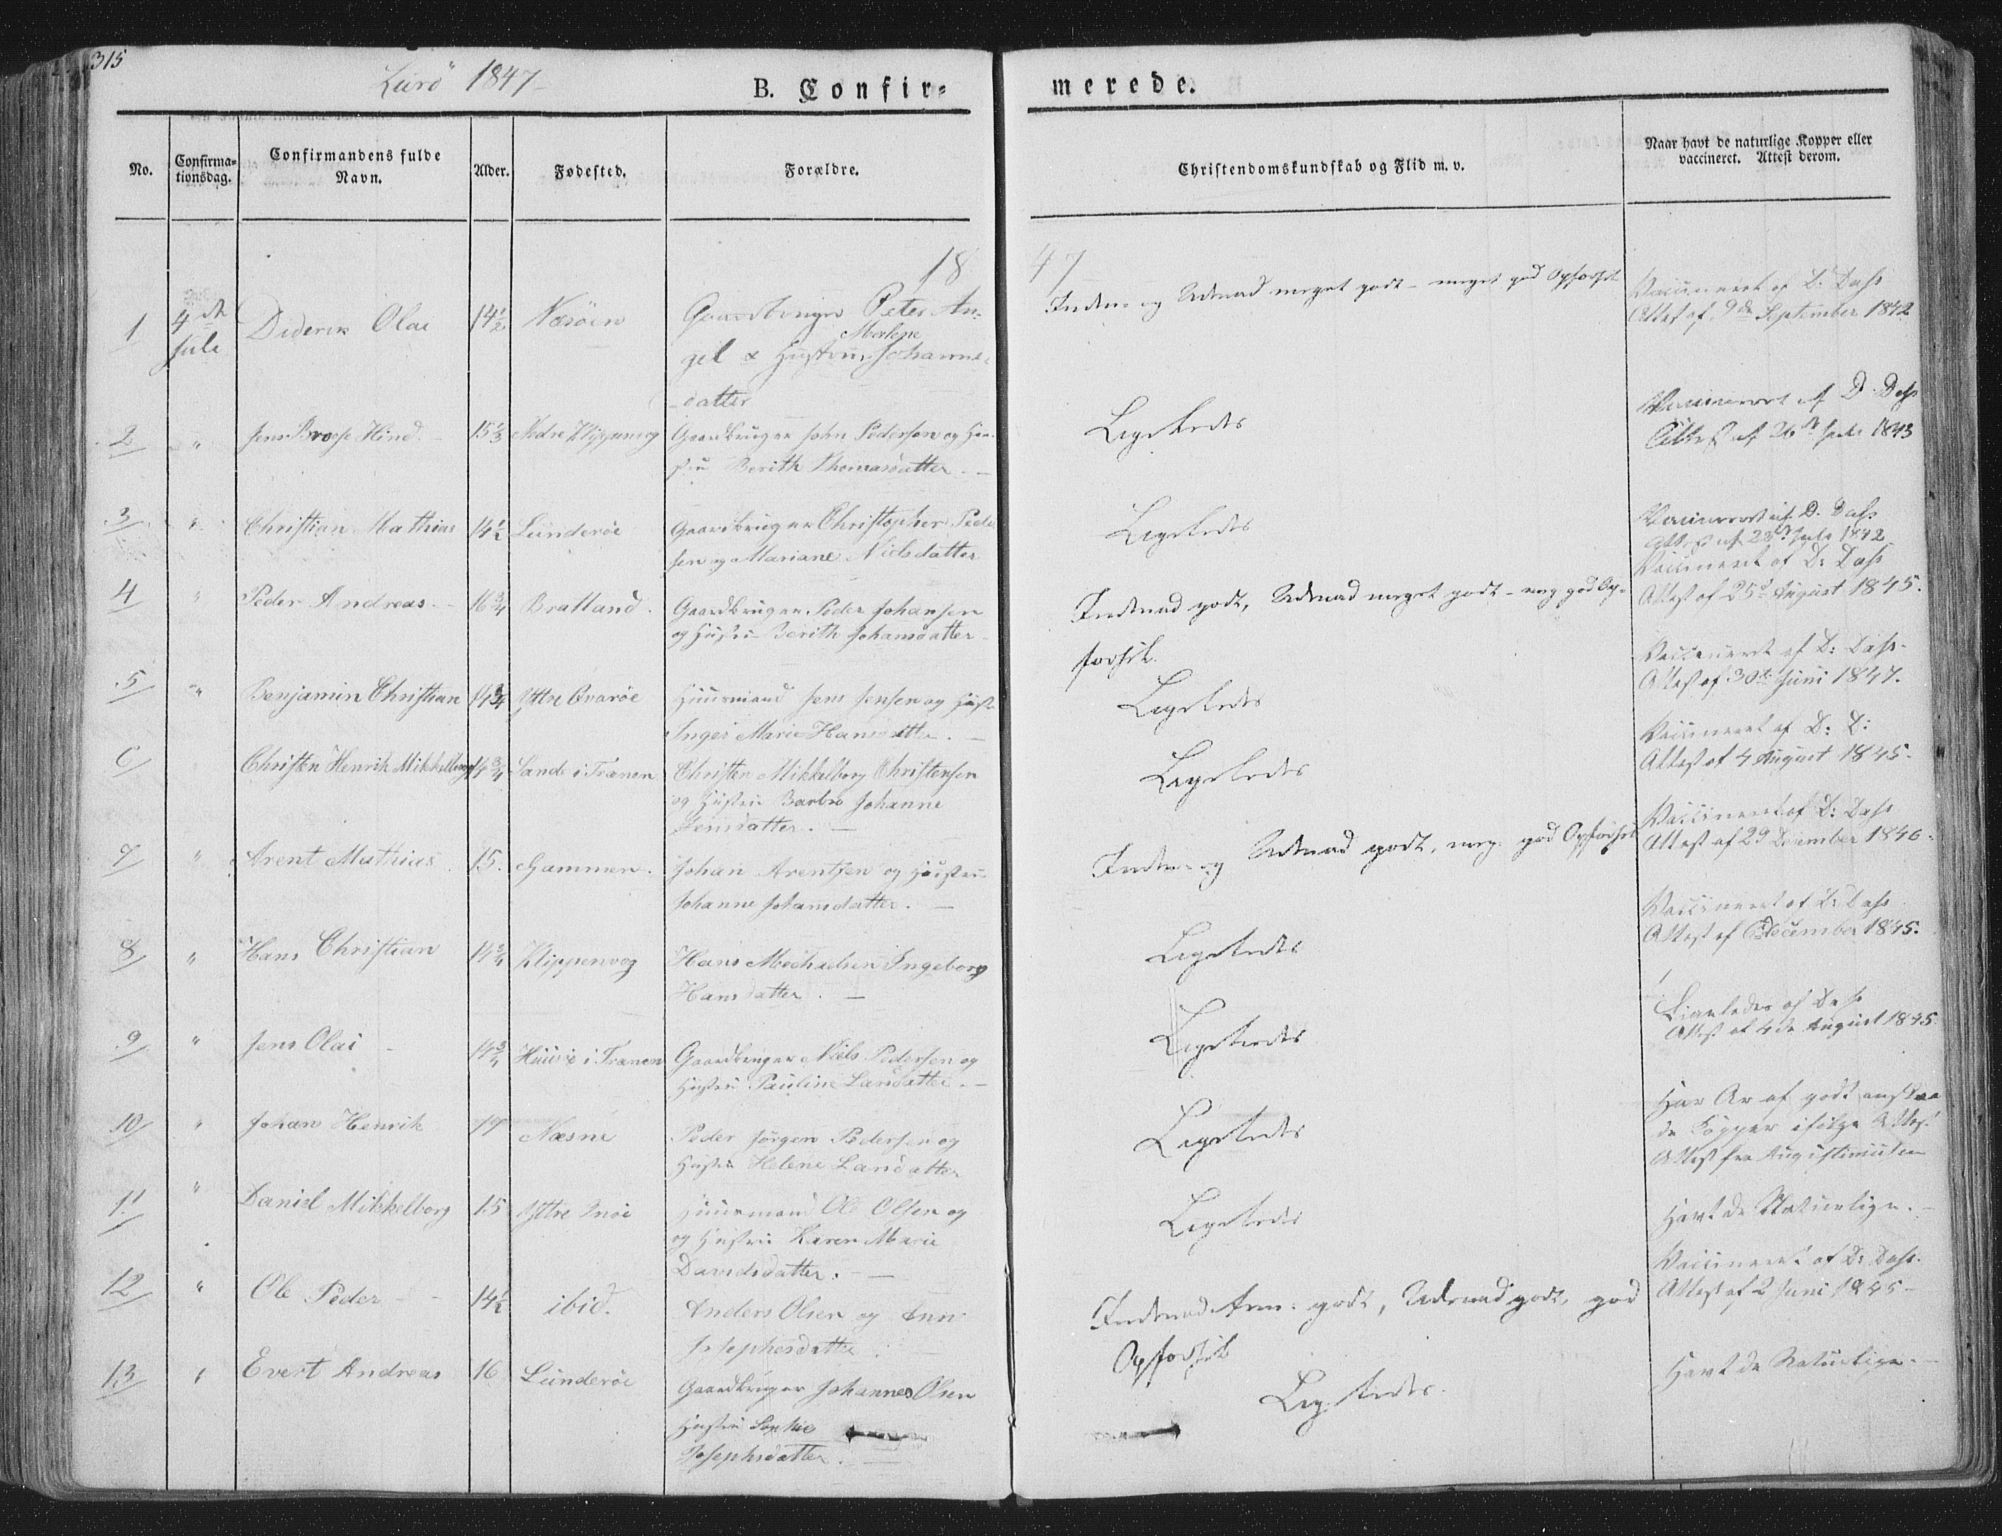 315
Lurö 1847
B. Confir-
merede.
No.
Confirma-
tionsdag.
Confirmandens fulde
Navn.
Alder.
Fødested.
Forældre.
Christendomskundskab og Flid m. v.
Naar havt de naturlige Kopper eller
vaccineret. Attest derom.
18
47
1 4de Diderik Olai 14½ Næsöen Gaardbruger Peter An-
Juli gel & Hustru Malene Johannes-
datter
Inden- og Udenad meget godt - meget god Opførsel
Vaccineret af D: Dahs
Attest af 9de September 1842
2 " Jens Hind. 15⅓ Nedre Klippinvog Gaardbruger John Pedersen og Hu-
stru Berith Thomasdatter. -
Ligeledes
Vaccineret af D. Dahs
Attest af 26de Juli 1843
3 " Christian Mathias 14½ Lunderöe Gaardbruger Christopher Peder
sen og Mariane Nielsdatter
Ligeledes
Vaccineret af D. Dahs
Attest af 23de Juli 1842
4 " Peder Andreas. - 16¾ Bratland. Gaardbruger Peder Johansen
og Hustru Berith Johansdatter -
Indenad godt, Udenad meget godt - meg god Op-
førsel.
Vaccineret af D: Dahs
Attest af 25de August 1845.
5 " Benjamin Christian 14¾ Yttre Qvaröe Huusmand Jens Jensen og Hust
Inger Marie Hansdatter. -
Ligeledes
Vaccineret af D: Dahs.
Attest af 30te Juni 1847.
6 Christen Henrik Mikkelborg 14¾ Sande i Trænen Christen Mikkelborg Christensen
og Hustru Barbro Johanne
Jensdatter. -
Ligeledes
Vaccineret af D: D:
Attest af 4 August 1845.
7 " Arent Mathias 15. Gammen. Johan Arentsen og Hustru
Johanne Johansdatter. -
Inden- og Udenad godt, meg. god Opførsel
Vaccineret af D: Dahs
Attest af 29 December 1846.
8 " Hans Christian 14¾ Klippenvog Hans Mechaelsen Ingeborg
Hansdatter. -
Ligeledes
Vaccineret af D: Dahs
Attest af December 1845.
9 " Jens Olai - 14¾ Huusöe i Trænen Gaardbruger Niels Pedersen og
Hustru Pauline Larsdatter. -
Ligeledes
Ligeledes af Dahs
Attest af 4de August 1845
10 " Johan Henrik 19 Næsne Peder Jörgen Pedersen og
Hustru Helene Larsdatter
Ligeledes
Har Ar af godt overstaae
de Kopper ifølge Attest
Attest fra
11 " Daniel Mikkelborg 15 Yttre Huusmand Ole Olsen og
og Hustru Karen Marie
Davidsdatter. -
Ligeledes
Havt de Naturlige. -
12 " Ole Peder - - 14½ ibid. Anders Olsen og Ann
Josephsdatter. -
Indenad godt, Udenad godt, god
Opførsel
Vaccineret af D: Dahs.
Attest af 2 Juni 1845 -
13 " Evert Andreas 16 Lunderöe Gaardbruger Johannes Olsen
Hustru Sophie
Josephsdatter. -
Ligeledes.
Havt de Naturlige. -